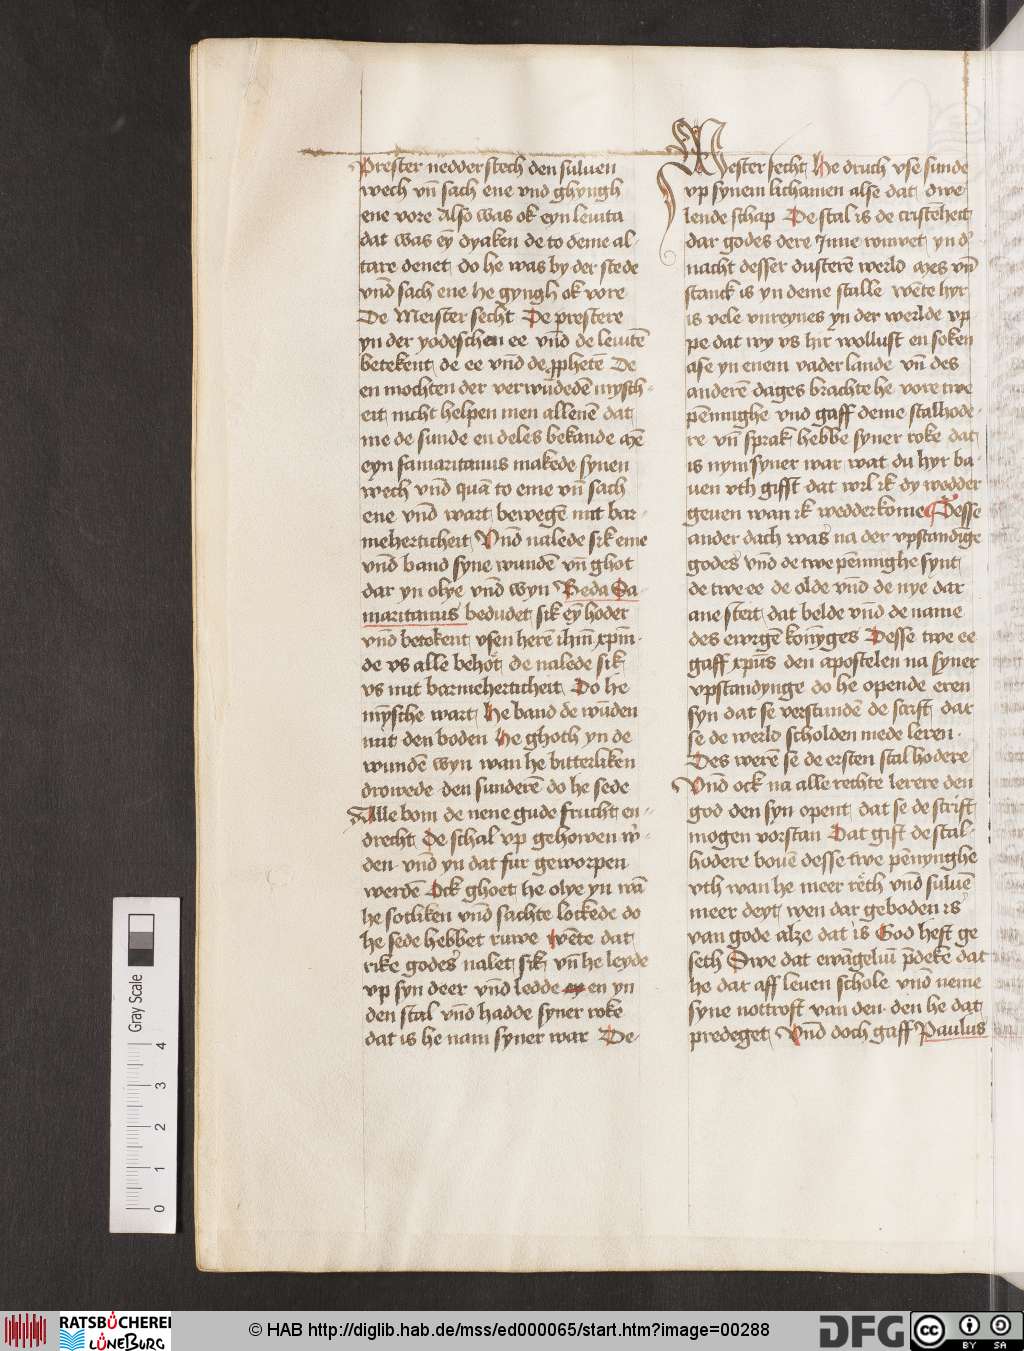 Prester nedder stech den suluen
wech vn̄ sach ene vnd ghyngh
ene vore Also was ok eyn leuita
dat was eȳ dyaken de to deme al-
tare denet do he was by der stede
vn̄d sach ene he gyngh ok vore
De Meister secht De prestere
yn der yodeschen ee vn̄d de leuitē
betekent de ee vn̄d de ꝓphetē De
en mochten der verwūdedē mysch-
eit nicht helpen men allenē dat
me de sunde en deles bekande
eyn samaritanus makede synen
wech vn̄d quā to eme vn̄ sach
ene vn̄d wart bewegē mit bar-
meherticheit Vn̄d nalede sik eme
vn̄d band syne wundē vn̄ ghot
dar yn olye vn̄d wyn Beda Sa
maritanus bedudet sik eȳ hoder
vn̄d betekent vsen herē ihm̄ xpm̄
de vs alle behot de nalede sik
vs mit barmeherticheit Do he
mȳsche wart He band de wūden
mit den boden He ghoth yn de
wundē wyn wan he bitterliken
drowede den sunderē do he sede
Alle bom de nene gude frucht en-
drecht De schal vp gehowen w-
den vn̄d yn dat fur geworpen
werdē Ock ghoet he olye yn wā
he sotliken vn̄d sachte lockede do
he sede hebbet ruwe wēte dat
rike godes nalet sik vn̄ he leyde
vp syn deer vn̄d ledde en yn
den stal vn̄d hadde syner roke
dat is he nam syner war De-
Mester secht He druch vse sunde
vp synem lichamen alse dat dwe
lende schap De stal is de cristēheit
dar godes dere ynne rouwet yn d'
nacht desser dusterē werld Mes vn̄
stanck is yn deme stalle wēte hyr
is vele vnreynes yn der werlde vp
pe dat wy vs hir wollust en soken
ase yn enem vader lande vn̄ des
anderē dages brachte he vore twe
pēnnighe vnd gaff deme stalhode-
re vn̄ sprak hebbe syner roke dat
is nym syner war wat du hyr ba-
uen vth gifft dat wil ik dy wedder
geuen wan ik wedderkome Desse
ander dach was na der vpstandige
godes vn̄d de twe pēnnighe synt
de twe ee de olde vn̄d de nye dar
ane steit dat belde vn̄d de name
des ewigē konȳges Desse twe ee
gaff xpūs den apostelen na syner
vpstandynge do he opende eren
syn dat se verstundē de scrift dar
se de werld scholden mede leren
Des werē se de ersten stalhodere
Vn̄d ock na alle rechte lerere den
god den syn opent dat se de scrift
mogen vorstan Dat gift de stal-
hodere bouē desse twe pēnynghe
vth wan he meer reth vn̄d suluē
meer deyt wen dar geboden is
van gode alze dat is God heft ge
seth Swe dat ewāgeliū p̄deke dat
he dar aff leuen schole vn̄d neme
syne nottroft van den den he dat
predeget Vn̄d doch gaff Paulus
Gray Scale
0 1 2 3 4
RATSBÜCHEREI
LÜNEBURG
© HAB http://diglib.hab.de/mss/ed000065/start.htm?image=00288
DFG
cc BY SA